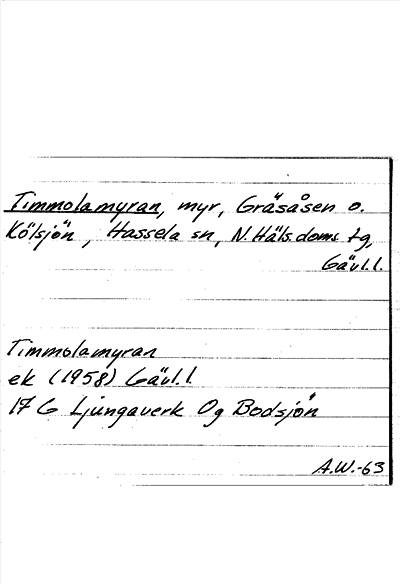 Timmolamyran, myr, Gräsåsen o.
Kölsjön, Hassela sn, N. Häls. doms. tg,
Gävl. l.
Timmolamyran
ek (1958) Gävl. l.
17 G Ljungaverk 0g Bodsjön
A.W.-63